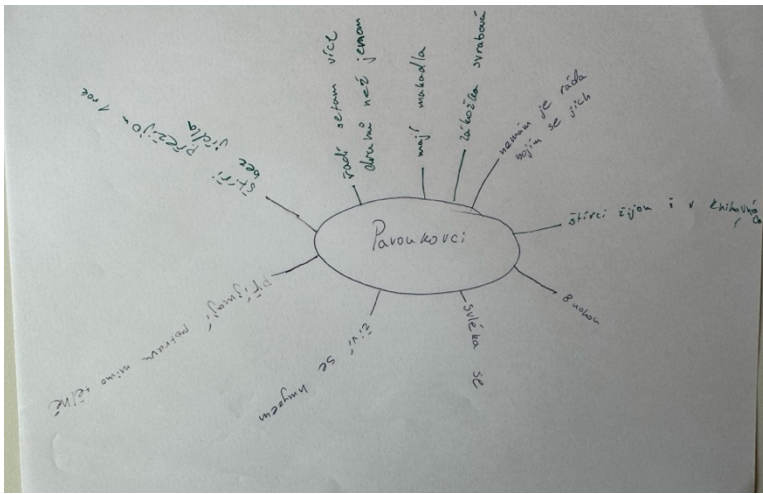 Pavoukovci
štíři
bez jídla
přežijou 1 rok
řadí se tam více
druhů než jenom
mají makadla
zákožka svrabová
nemám je ráda
bojím se jich
štírci žijou i v knihovnách
8 nohou
svléká se
živí se hmyzem
přijímají potravu mimo tělně